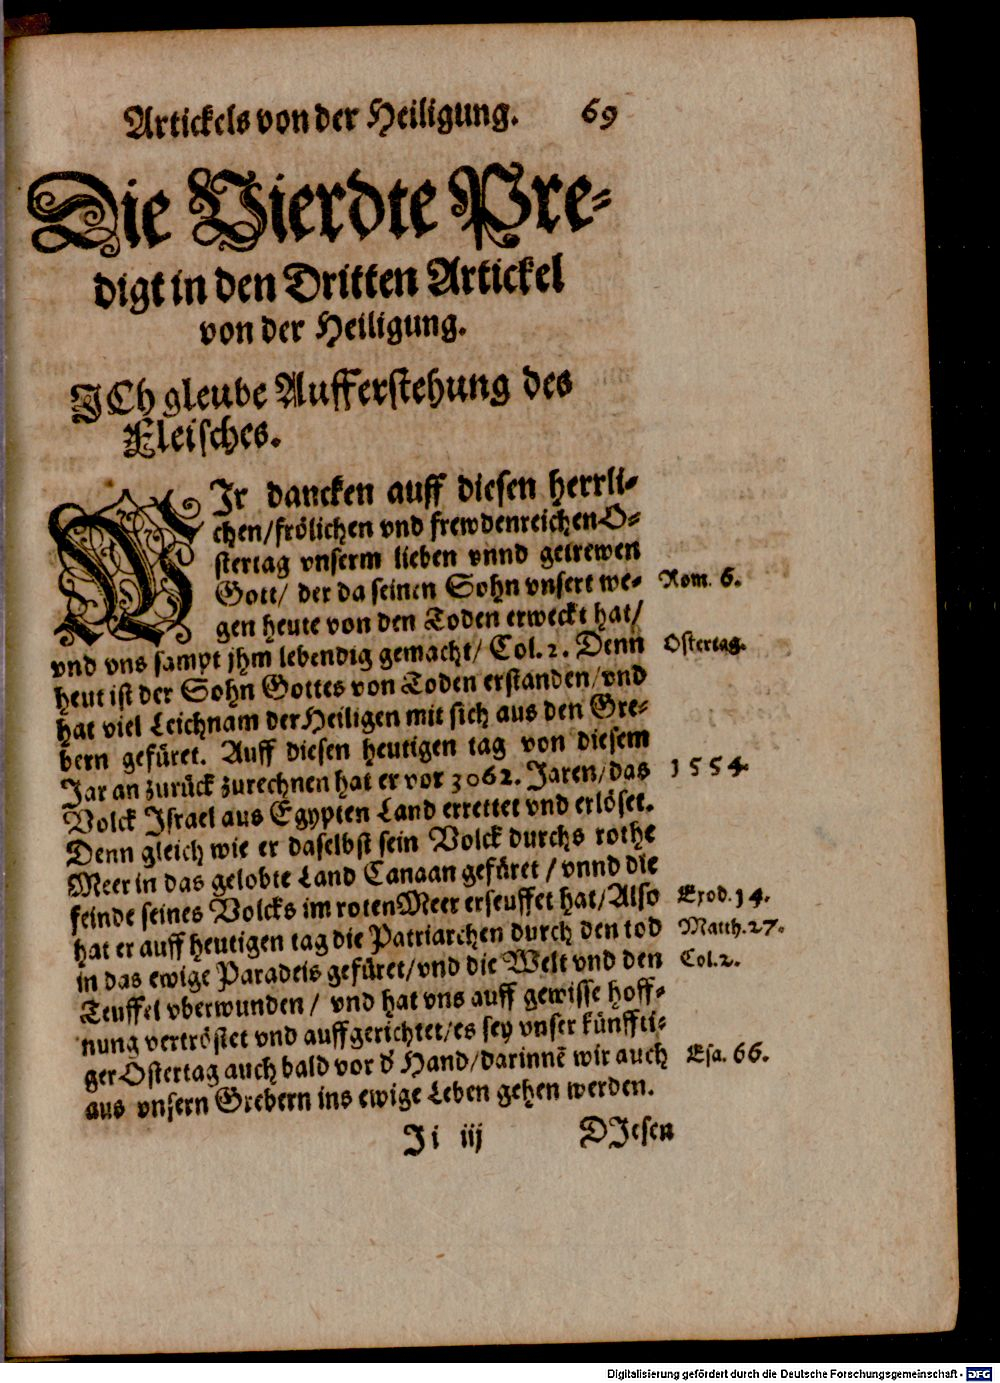 Artickels von der Heiligung. 69
Die Vierdte Pre-
digt in den Dritten Artickel
von der Heiligung.
ICh gleube Aufferstehung des
Fleisches.
WIr dancken auff diesen herrli-
chen/frölichen vnd frewdenreichen O-
stertag vnserm lieben vnnd getrewen
Gott/ der da seinen Sohn vnsert we- Rom. 6.
gen heute von den Toden erweckt hat/
vnd vns sampt jhm lebendig gemacht/ Col. 2. Denn Ostertag.
heut ist der Sohn Gottes von Toden erstanden/vnd
hat viel Leichnam der Heiligen mit sich aus den Gre-
bern gefüret. Auff diesen heutigen tag von diesem
Jar an zurück zurechnen hat er vor 3062. Jaren/das 1554.
Volck Israel aus Egypten Land errettet vnd erlöset.
Denn gleich wie er daselbst sein Volck durchs rothe
Meer in das gelobte Land Canaan gefüret / vnnd die
feinde seines Volcks im roten Meer erseuffet hat/Also Exod. 14.
hat er auff heutigen tag die Patriarchen durch den tod Matth. 27.
in das ewige Paradeis gefüret/vnd die Welt vnd den Col. 2.
Teuffel vberwunden / vnd hat vns auff gewisse hoff-
nung vertröstet vnd auffgerichtet/es sey vnser künffti-
ger Ostertag auch bald vor d' Hand/darinnē wir auch Esa. 66.
aus vnsern Grebern ins ewige Leben gehen werden.
Ji iij DJesen
Digitalisierung gefördert durch die Deutsche Forschungsgemeinschaft - DFG